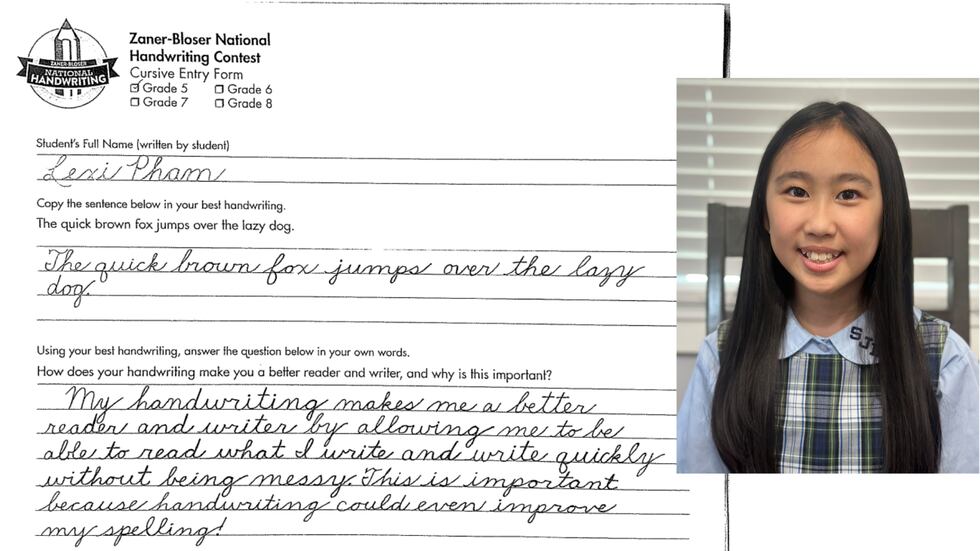 Zaner-Bloser National
Handwriting Contest
Cursive Entry Form
Grade 5 Grade 6
Grade 7 Grade 8
ZANER-BLOSER
NATIONAL
HANDWRITING
Student's Full Name (written by student)
Lexi Pham
Copy the sentence below in your best handwriting.
The quick brown fox jumps over the lazy dog.
The quick brown fox jumps over the lazy
dog.
Using your best handwriting, answer the question below in your own words.
How does your handwriting make you a better reader and writer, and why is this important?
My handwriting makes me a better
reader and writer by allowing me to be
able to read what I write and write quickly
without being messy. This is important
because handwriting could even improve
my spelling!